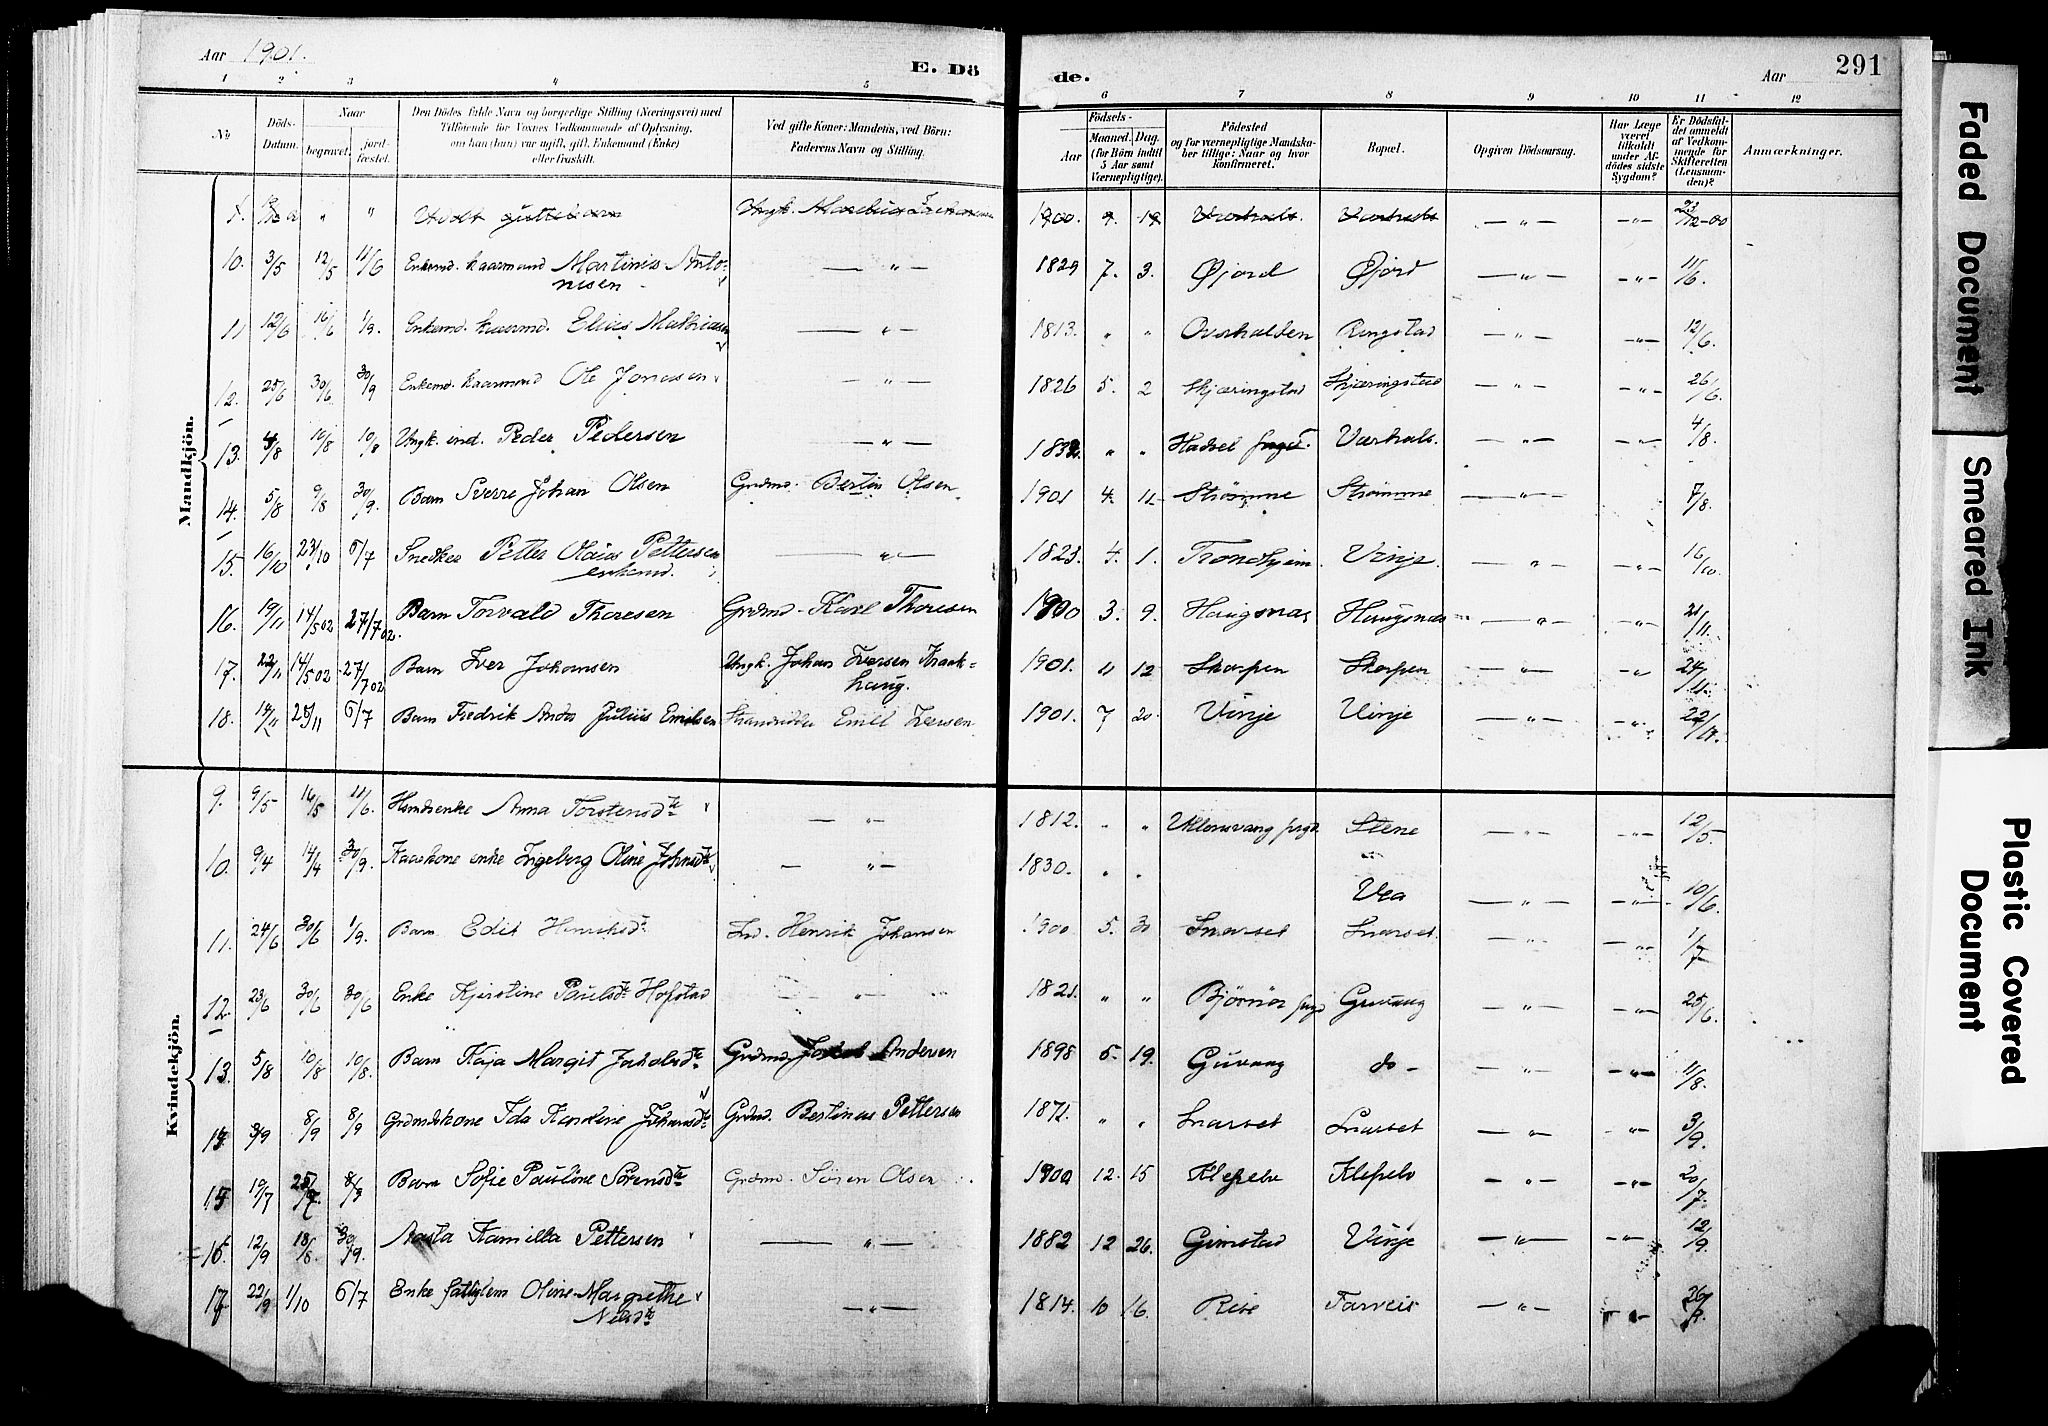 Aar 1901. E. Dö
1 2 3 4 5
No
Döds-Datum.
Naar
begravet.
jord-fæstet.
Den Dödes fulde Navn og borgerlige Stilling (Næringsvei) med
Tilföiende for Voxnes Vedkommende af Oplysning.
om han (hun) var ugift, gift, Enkemand (Enke)
eller fraskilt.
Ved gifte Koner: Mandens, ved Börn:
Faderens Navn og Stilling.
de. Aar 291
6 7 8 9 10 11 12
Födsels-
Aar
Maaned. Dag.
(for Börn indtil
5 Aar samt
Værnepligtige).
Födested
og for værnepligtige Mandska-
ber tillige: Naar og hvor
konfirmeret.
Bopæl.
Opgiven Dödsaarsag.
Har Læge
været
tilkaldt
under Af-
dödes sidste
Sygdom?
Er Dödsfal-
det anmeldt
af Vedkom-
mende for
Skifteretten
(Lensman-
den)?
Anmærkninger.
Mandkjön.
" " 1900. 9. 19 — " — — " —
10. 3/5 12/5 11/6 Enkemd. kaarmand Martinus Anto-
nisen — " — 1829 7. 3. Øjord Øjord — " — — " — 11/6.
11 12/6 16/6 1/9. Enkemd. kaarmd. Elias Mathiasen — " — 1813. " " Overhalden Ringstad — " — — " — 12/6.
12. 25/6 30/6 30/9 Enkemd. kaarmand Ole Jonassen — " — 1826 5. 2 Skjæringstad Skjæringstad — " — — " — 26/6.
13. 4/8 10/8 10/8 Ungk. ind. Peder Pedersen — " — " " Hadsel prgd. — " — — " — 4/8.
14. 5/8 9/8 30/9. Barn Sverre Johan Olsen Grdmd. Bertin Olsen 1901 4. 11 Strømme Strømme — " — — " — 7/8.
15. 16/10 23/10 6/7 Snedker Petter Olaus Pettersen
enkemd. — " — 1823. 4. 1. Trondhjem. Vinje. — " — — " — 16/10.
16. 19/11 14/5 02 27/7 02. Barn Torvald Thoresen Grdmd. Karl Thoresen 1900 3. 9. Haugsnes Haugsnes — " — — " — 21/11.
17. 22/11 14/5 02 27/7 02 Barn Iver Johansen Ungk. Johan Iversen Kraak-
haug. 1901. 11 12 Skorpen Skorpen — " — — " — 24/11.
18. 25/11 6/7 Barn Fredrik Julius Emilsen Emil Iversen 1901. 7 20. Vinje Vinje — " — — " —
Kvindekjön.
9. 9/5 16/5 11/6. Anna Torstensdtr — " — 1812. " " Ullensvang prgd. Stene — " — — " — 12/5.
10. 9/4 14/4 30/9. Kaarkone enke Ingeborg Oline Johnsdtr — " — 1830. " " Vea — " — — " — 10/6.
11. 24/6 30/6 1/9. Barn Edit Henriksdtr Ind. Henrik Johansen 1900 5. 30 Snarset Snarset. — " — — " — 1/7
12. 23/6 30/6 30/6 Enke Kjerstine Paulsdtr Hofstad — " — 1821. " " Bjørnør prgd Gruvang — " — — " — 25/6.
13. 5/8 10/8 10/8. Barn Kaja Margit Jakobsdtr Grdmd. Jakob Andersen 1898 5. 19. do — — " — — " — 11/8.
3/9 8/9 8/9 Grdmdskone Ida Karoline Johansdtr Grdmd. Bertinus Pettersen " " Snarset Snarset — " — — " — 3/9.
15 19/7 8/9 Barn Sofie Pauline Sørensdtr Grdmd. Søren Olsen 1900 12. 15 Klepelv Klepelv — " — — " — 20/7.
16. 12/9 18/8. 30/9. Aasta Kamilla Pettersen — " — 1882 12 26. Grimstad Vinje — " — — " — 12/9.
17 22/9 1/10 6/7 Enke fattiglem Oline Margrethe
Nilsdtr — " — 1814. 10 16. Rise — " — — " —
Faded Document
Smeared Ink
Plastic Covered
Document